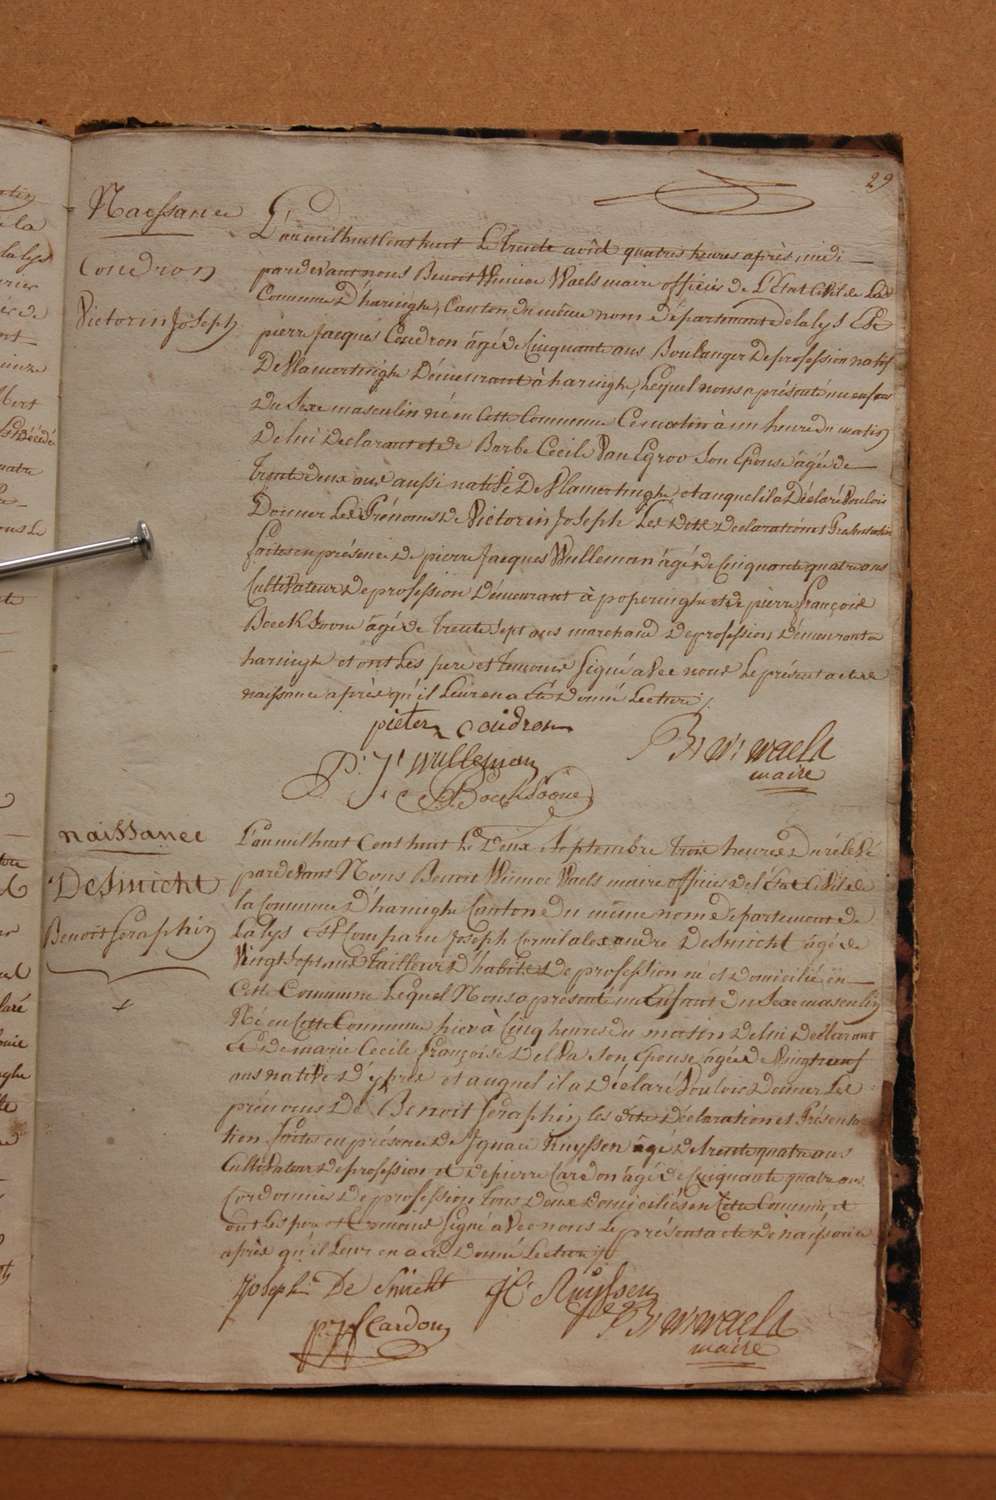 29
Naissance
Coudron
Victorin Joseph
L'an mil huit cent huit Le trente août quatre heures après midi
par devant nous Benoit Winnoc Waels maire officier de L'Etat Civil de La
Commune D'haringhe, Canton du même nom département de la lys Est
pierre Jacques Coudron âgé de Cinquante ans Boulanger de profession natif
De Vlamertinghe Démeurant à haringhe, Lequel nous a présenté un enfant
du Sexe masculin né en Cette Commune Ce matin à un heure du matin
de lui déclarant et de Barbe Cecile Van Egroo Son Epouse âgée de
trente deux ans aussi native De Vlamertinghe, et auquel il a Déclaré Vouloir
Donner Les Prénoms de Victorin Joseph Les dittes déclaration et Présentation
faites en présence de pierre Jacques Wulleman âgé de Cinquante quatre ans
Cultivateur de profession démeurant à poperinghe et de pierre françois
Boecksoone âgé de trente Sept ans marchand de profession démeurant a
haringhe et ont Les pere et temoins Signé avec nous Le présent acte de
naissance après qu'il Leur en a été donné Lecture
pieter Coudron
P: J: Wulleman
B: W: Waels
maire
Boecksoone
naissance
DeSmicht
Benoit Seraphin
L'an mil huit Cent huit Le Deux Septembre trois heures du rélévé
par devant Nous Benoit Winnoc Waels maire officier de l'Etat Civil de
la Commune d'haringhe Canton du même nom département de
La lys Est Comparu Joseph Corneil alexandre DeSmicht âgé de
Vingt Sept ans Tailleur D'habits de profession né et domicilié en
Cette Commune Lequel Nous a présenté un Enfant du Sexe masculin
Né en Cette Commune hier à Cinq heures du matin de lui déclarant
et de marie Cecile françoise Delva Son Epouse agée de Vingt neuf
ans native d'ypres et auquel il a déclaré Vouloir donner Les
prénoms de Benoit Seraphin, les dite déclaration et Présenta
tion faites en présence de Ignace Ruyssen âgé de trente quatre ans
Cultivateur de profession et de pierre Cardon âgé de Cinquante quatre ans
Cordonnier de profession tous deux domiciliés en Cette Commune, et
ont Les pere et temoins Signé avec nous Le présent acte de naissance
après qu'il Leur en a été donné Lecture
Joseph De Smicht
Ruyssen
B: W: Waels
maire
Cardon